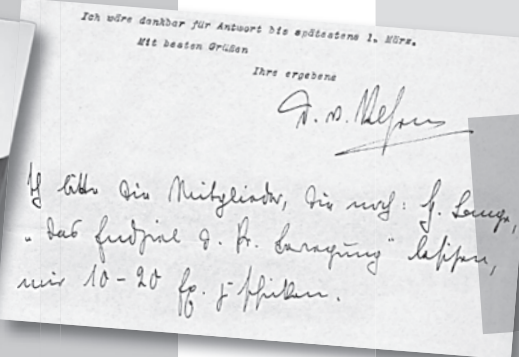 Ich wäre dankbar für Antwort bis spätestens 1. März.
Mit besten Grüßen
Ihre ergebene
D. v.
Ich bitte die Mitglieder, die noch: H. Lange,
„Das Endziel d. Fr. bewegung“ besitzen,
mir 10-20 zu schicken.